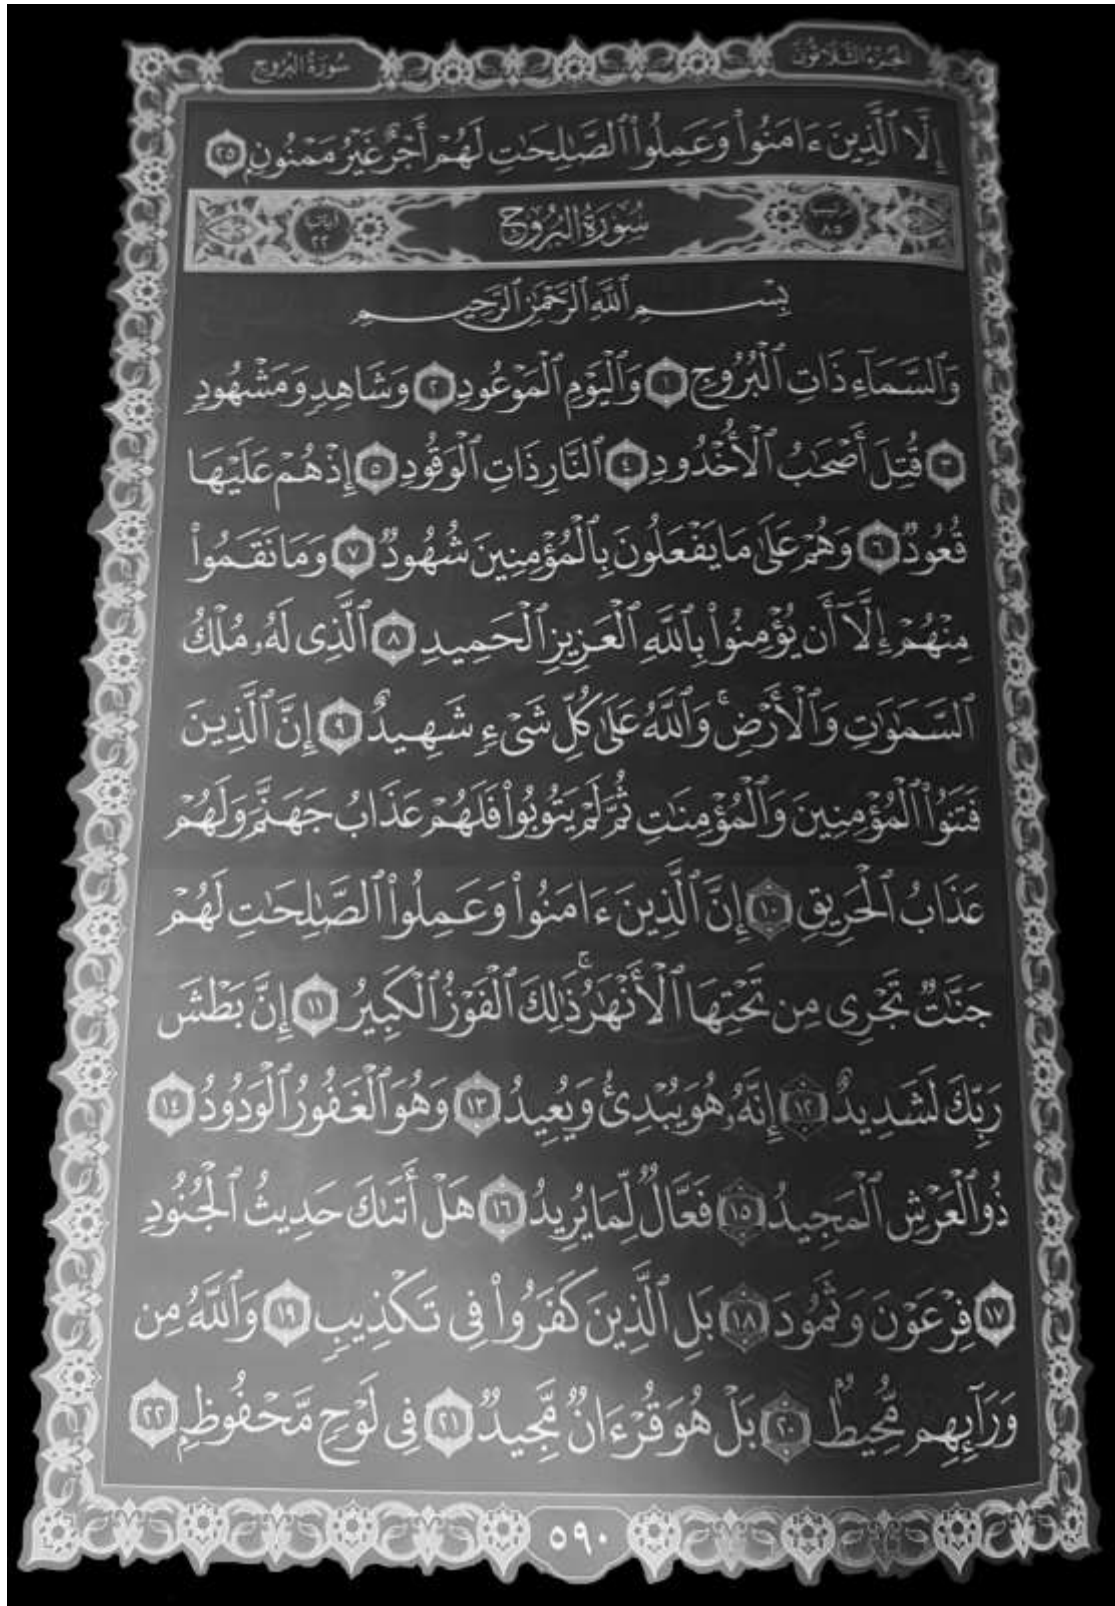 سُورَةُ البُرُوجِ
الجُزْءُ الثَّلَاثُونَ
إِلَّا ٱلَّذِينَ ءَامَنُوا۟ وَعَمِلُوا۟ ٱلصَّـٰلِحَـٰتِ لَهُمْ أَجْرٌ غَيْرُ مَمْنُونٍۭ ٢٥
ترتيبها ٨٥ سُورَةُ البُرُوجِ آياتها ٢٢
بِسْمِ ٱللَّهِ ٱلرَّحْمَـٰنِ ٱلرَّحِيمِ
وَٱلسَّمَآءِ ذَاتِ ٱلْبُرُوجِ ١ وَٱلْيَوْمِ ٱلْمَوْعُودِ ٢ وَشَاهِدٍ وَمَشْهُودٍ
٣ قُتِلَ أَصْحَـٰبُ ٱلْأُخْدُودِ ٤ ٱلنَّارِ ذَاتِ ٱلْوَقُودِ ٥ إِذْ هُمْ عَلَيْهَا
قُعُودٌ ٦ وَهُمْ عَلَىٰ مَا يَفْعَلُونَ بِٱلْمُؤْمِنِينَ شُهُودٌ ٧ وَمَا نَقَمُوا۟
مِنْهُمْ إِلَّآ أَن يُؤْمِنُوا۟ بِٱللَّهِ ٱلْعَزِيزِ ٱلْحَمِيدِ ٨ ٱلَّذِى لَهُۥ مُلْكُ
ٱلسَّمَـٰوَٰتِ وَٱلْأَرْضِ ۚ وَٱللَّهُ عَلَىٰ كُلِّ شَىْءٍ شَهِيدٌ ٩ إِنَّ ٱلَّذِينَ
فَتَنُوا۟ ٱلْمُؤْمِنِينَ وَٱلْمُؤْمِنَـٰتِ ثُمَّ لَمْ يَتُوبُوا۟ فَلَهُمْ عَذَابُ جَهَنَّمَ وَلَهُمْ
عَذَابُ ٱلْحَرِيقِ ١٠ إِنَّ ٱلَّذِينَ ءَامَنُوا۟ وَعَمِلُوا۟ ٱلصَّـٰلِحَـٰتِ لَهُمْ
جَنَّـٰتٌ تَجْرِى مِن تَحْتِهَا ٱلْأَنْهَـٰرُ ۚ ذَٰلِكَ ٱلْفَوْزُ ٱلْكَبِيرُ ١١ إِنَّ بَطْشَ
رَبِّكَ لَشَدِيدٌ ١٢ إِنَّهُۥ هُوَ يُبْدِئُ وَيُعِيدُ ١٣ وَهُوَ ٱلْغَفُورُ ٱلْوَدُودُ ١٤
ذُو ٱلْعَرْشِ ٱلْمَجِيدُ ١٥ فَعَّالٌ لِّمَا يُرِيدُ ١٦ هَلْ أَتَىٰكَ حَدِيثُ ٱلْجُنُودِ
١٧ فِرْعَوْنَ وَثَمُودَ ١٨ بَلِ ٱلَّذِينَ كَفَرُوا۟ فِى تَكْذِيبٍ ١٩ وَٱللَّهُ مِن
وَرَآئِهِم مُّحِيطٌۢ ٢٠ بَلْ هُوَ قُرْءَانٌ مَّجِيدٌ ٢١ فِى لَوْحٍ مَّحْفُوظٍۭ ٢٢
٥٩٠